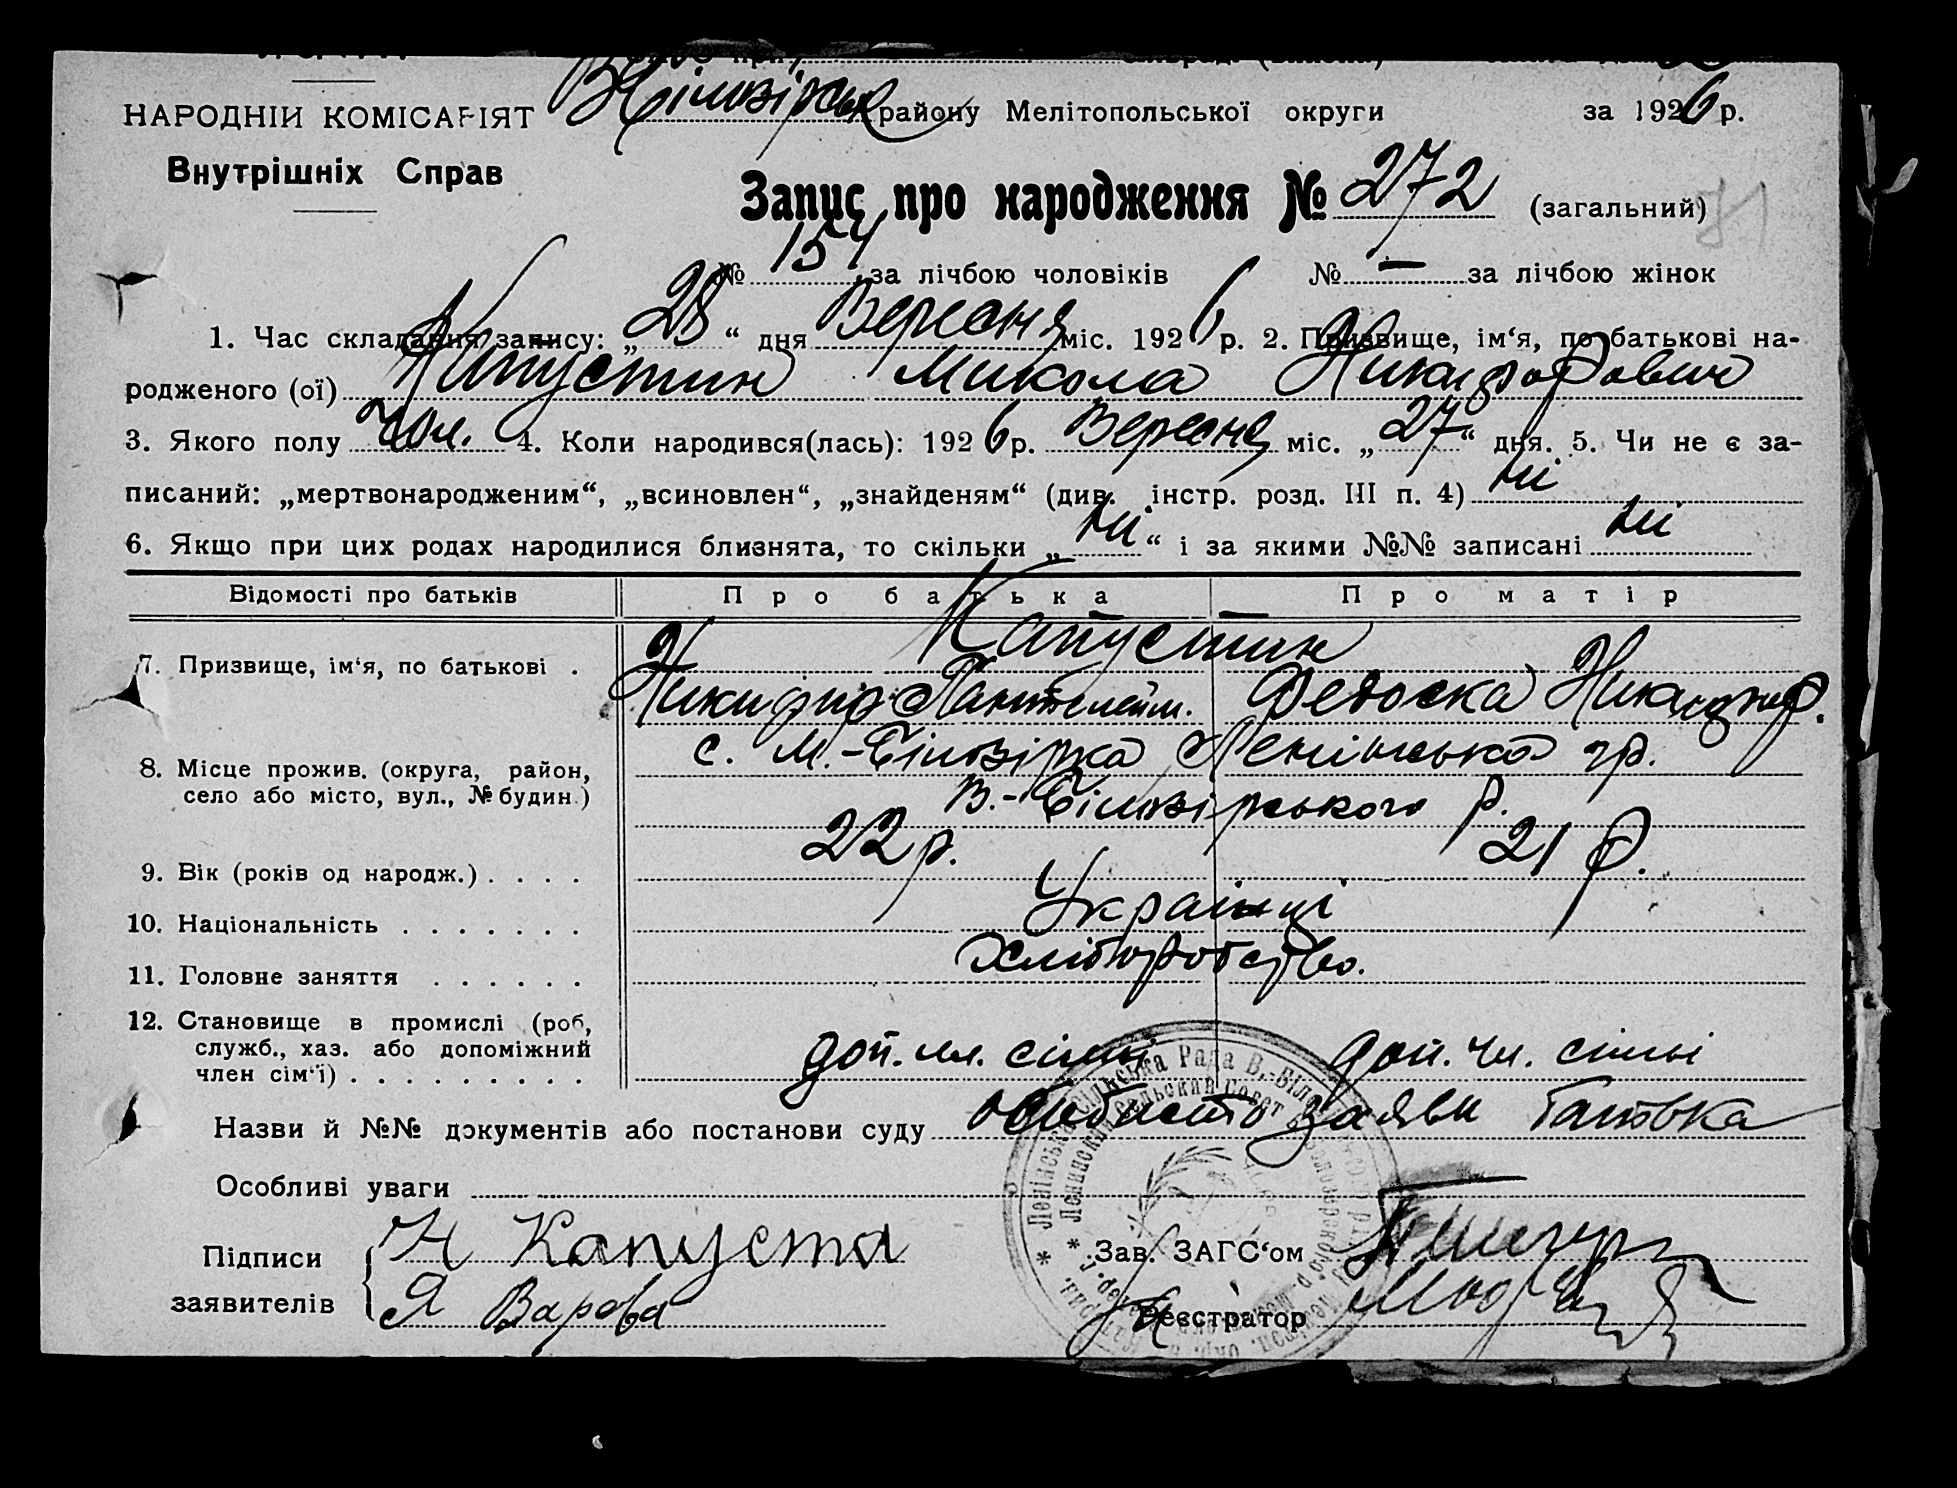 НАРОДНІЙ КОМІСАРІЯТ
Внутрішніх Справ
району Мелітопольської округи за 1926 р.
Запис про народження № 272 (загальний)
71
№ 154 за лічбою чоловіків № — за лічбою жінок
1. Час складання запису: „28“ дня Вересня міс. 1926 р. 2. Призвище, ім‘я, по батькові на-
родженого (ої) Капустин Микола Никифорович
3. Якого полу чол. 4. Коли народився(лась): 1926 р. Вересня міс. „27“ дня. 5. Чи не є за-
писаний: „мертвонародженим“, „всиновлен“, „знайденям“ (див. інстр. розд. III п. 4) ні
6. Якщо при цих родах народилися близнята, то скільки „ні“ і за якими №№ записані ні
Відомості про батьків Про батька Про матір
Капустин
7. Призвище, ім‘я, по батькові . Никифор Пантелейм. Федоска Никифор.
8. Місце прожив. (округа, район, село або місто, вул., № будин.) с. М.-Білозірка Ленінська гр.
В.-Білозірського р.
9. Вік (років од народж.) . . . . 22 р. 21 р.
10. Національність . . . . . . . Українці
11. Головне заняття . . . . . . Хліборобство.
12. Становище в промислі (роб, служб., хаз. або допоміжний член сім‘ї) . . . . . . . . . доп. чл. сімьі доп. чл. сімьі
Назви й №№ документів або постанови суду особисто заяви батька
Особливі уваги
Підписи заявителів
Н Капуста
Я Варава
Зав. ЗАГС‘ом
Реєстратор
Ленінська Сільська Рада В.-Біло
Ленинский Сельский Совет